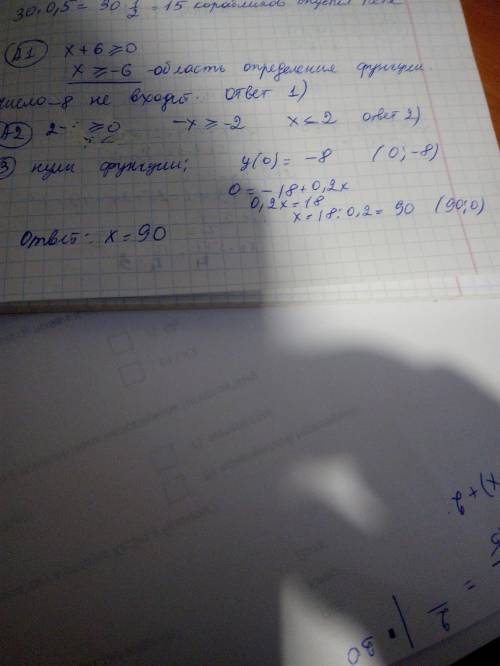 30·0,5 = 30·1/2 = 15 корабликов
А1 x+6 ≥ 0
x ≥ -6 - область определения функции.
число -8 не входит. ответ 1)
А2 2- ≥ 0 -x ≥ -2 x ≤ 2 ответ 2)
3) нули функции; y(0) = -8 (0;-8)
0 = -18+0,2x
0,2x = 18
x = 18:0,2 = 90 (90;0)
Ответ: x = 90
x)+2
= 2
30